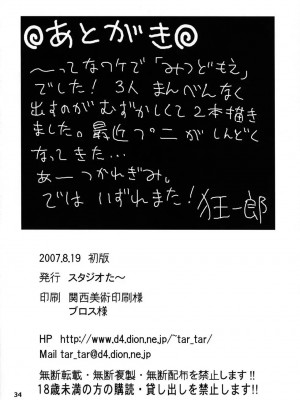 あとがき
～ってなワケで「みつどもえ」
でした！3人 まんべんなく
出すのがむずかしくて2本描き
ました。最近プニがしんどく
なってきた…
あーつかれぎみ。
では いずれまた！ 狂一郎
2007.8.19 初版
発行 スタジオた～
印刷 関西美術印刷様
ブロス様
HP http://www.d4.dion.ne.jp/~tar_tar/
Mail tar_tar@d4.dion.ne.jp
無断転載・無断複製・無断配布を禁止します!!
18歳未満の方の購読・貸し出しを禁止します!!
34